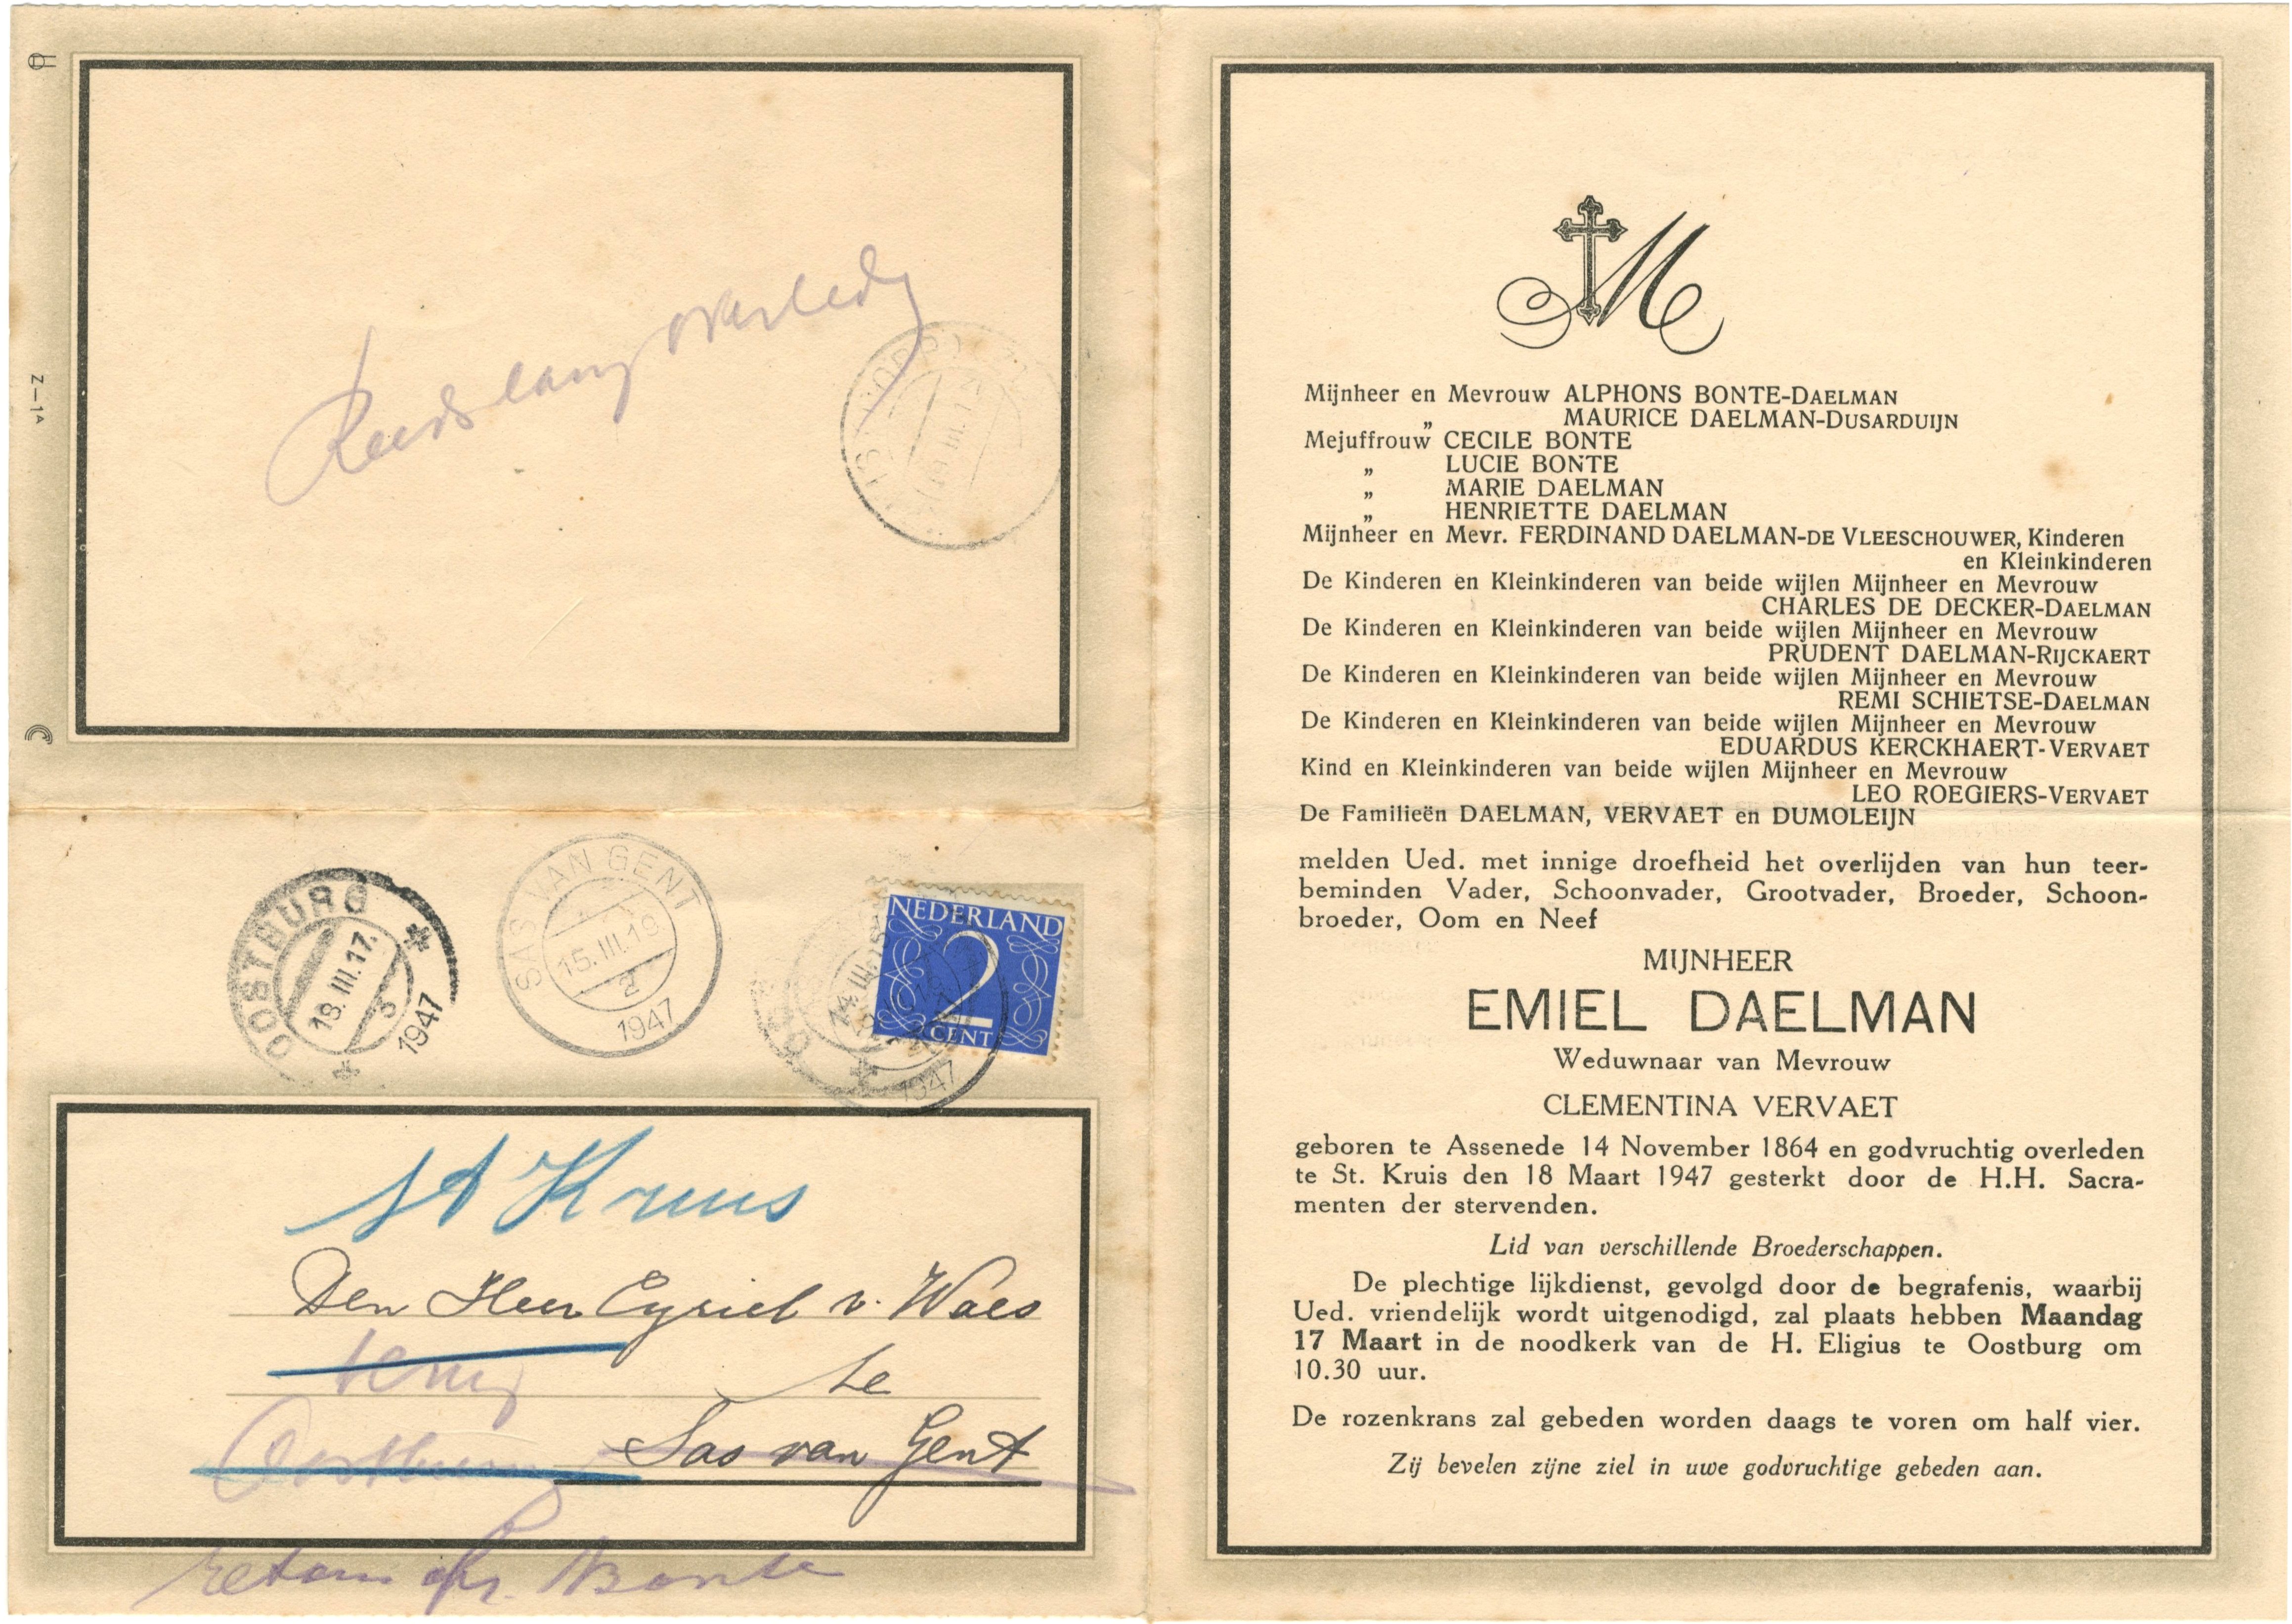 Z—1A
Reeds lang overleden
OOSTBURG
18.III.17.
3
1947
SAS VAN GENT
15.III.19
2
1947
NEDERLAND
2
CENT
14.III.15
1947
St Kruis
Den Heer Cyriel v. Waes
terug
te
Oostburg
Sas van Gent
retour afz. Bonte
M
Mijnheer en Mevrouw ALPHONS BONTE-DAELMAN
„ MAURICE DAELMAN-DUSARDUIJN
Mejuffrouw CECILE BONTE
„ LUCIE BONTE
„ MARIE DAELMAN
„ HENRIETTE DAELMAN
Mijnheer en Mevr. FERDINAND DAELMAN-DE VLEESCHOUWER, Kinderen
en Kleinkinderen
De Kinderen en Kleinkinderen van beide wijlen Mijnheer en Mevrouw
CHARLES DE DECKER-DAELMAN
De Kinderen en Kleinkinderen van beide wijlen Mijnheer en Mevrouw
PRUDENT DAELMAN-RIJCKAERT
De Kinderen en Kleinkinderen van beide wijlen Mijnheer en Mevrouw
REMI SCHIETSE-DAELMAN
De Kinderen en Kleinkinderen van beide wijlen Mijnheer en Mevrouw
EDUARDUS KERCKHAERT-VERVAET
Kind en Kleinkinderen van beide wijlen Mijnheer en Mevrouw
LEO ROEGIERS-VERVAET
De Familieën DAELMAN, VERVAET en DUMOLEIJN
melden Ued. met innige droefheid het overlijden van hun teer-
beminden Vader, Schoonvader, Grootvader, Broeder, Schoon-
broeder, Oom en Neef
MIJNHEER
EMIEL DAELMAN
Weduwnaar van Mevrouw
CLEMENTINA VERVAET
geboren te Assenede 14 November 1864 en godvruchtig overleden
te St. Kruis den 18 Maart 1947 gesterkt door de H.H. Sacra-
menten der stervenden.
Lid van verschillende Broederschappen.
De plechtige lijkdienst, gevolgd door de begrafenis, waarbij
Ued. vriendelijk wordt uitgenodigd, zal plaats hebben Maandag
17 Maart in de noodkerk van de H. Eligius te Oostburg om
10.30 uur.
De rozenkrans zal gebeden worden daags te voren om half vier.
Zij bevelen zijne ziel in uwe godvruchtige gebeden aan.